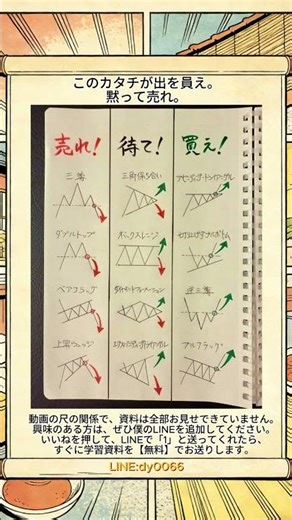 このカタチが出を員え。
黙って売れ。
売れ! 待て! 買え!
三尊 三角保ち合い アセンディングトライアングル
ダブルトップ ボックスレンジ
ベアフラッグ ダイヤモンドフォーメーション 逆三尊
上昇ウェッジ ブルフラッグ
動画の尺の関係で、資料は全部お見せできていません。
興味のある方は、ぜひ僕のLINEを追加してください。
いいねを押して、LINEで「1」と送ってくれたら、
すぐに学習資料を【無料】でお送りします。
LINE:dy0066